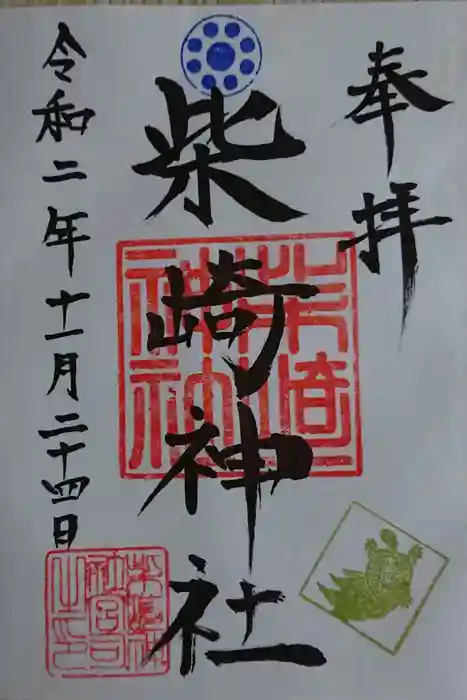 奉拝
柴崎神社
令和二年十一月二十四日
柴崎神社